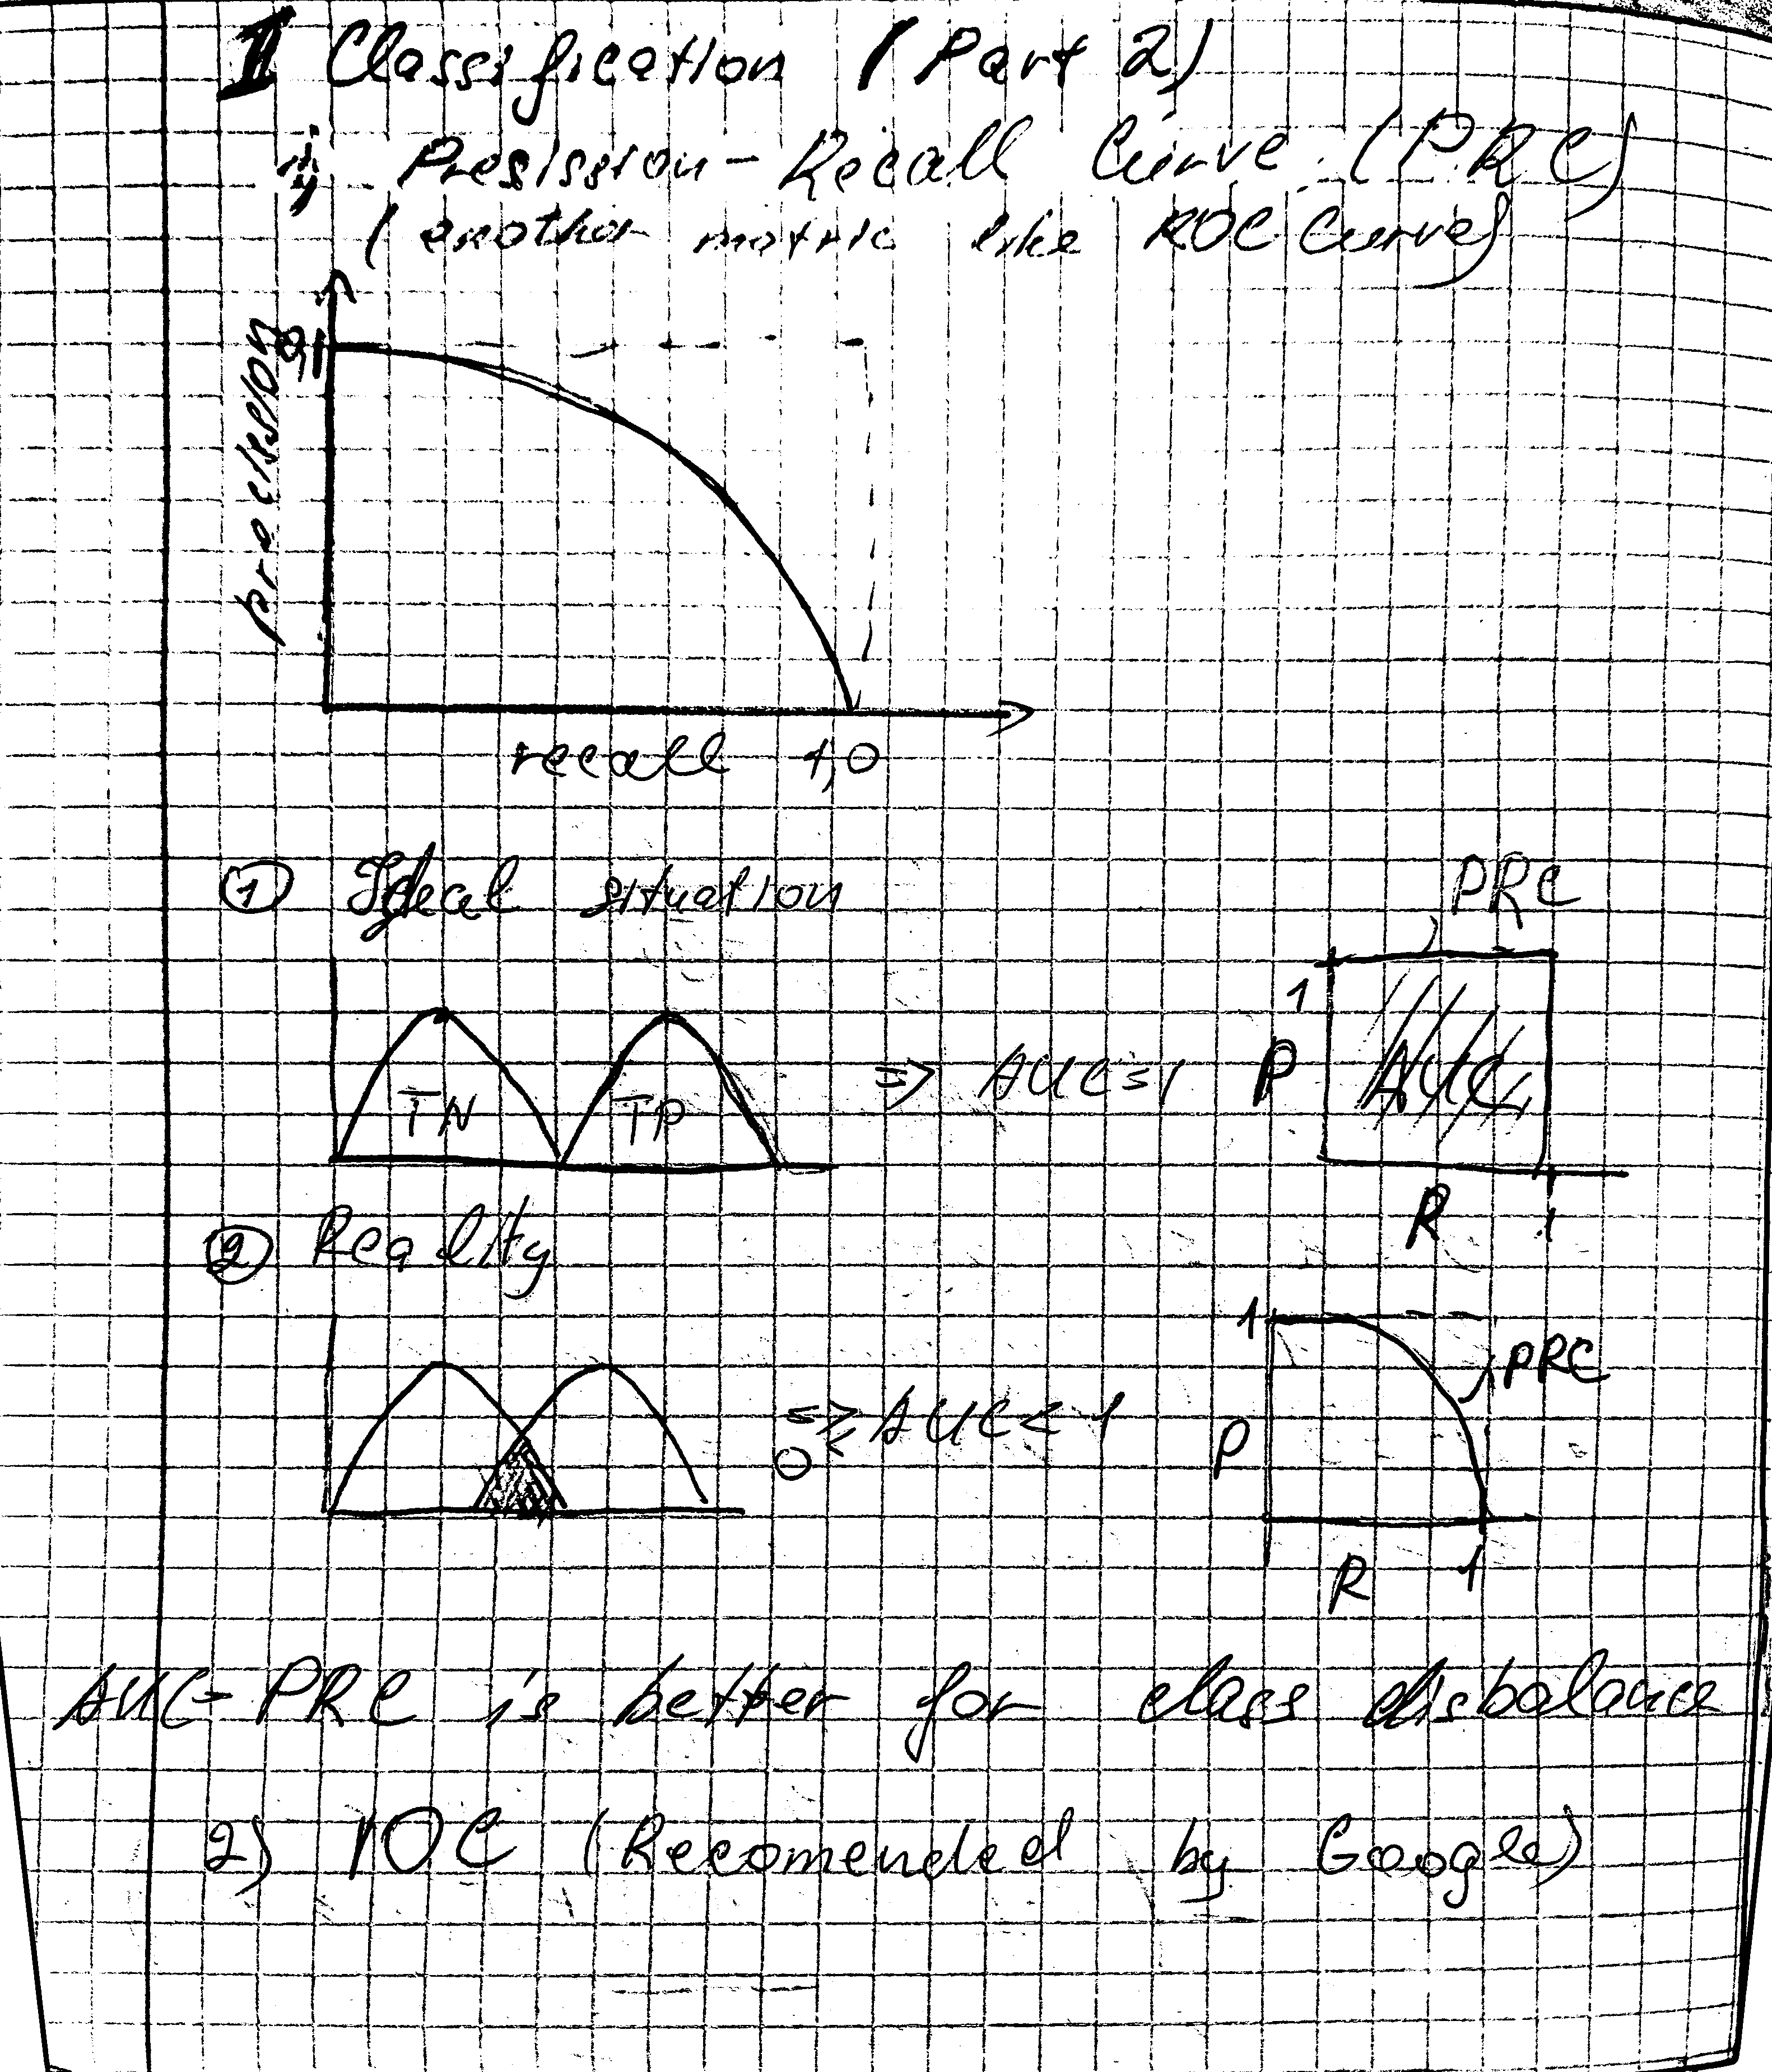 II Classification (Part 2)
Presission-Recall Curve (PRC)
(another metric like ROC Curve)
precission
1
recall 1,0
① Ideal situation
PRC
1
TN TP => AUC=1 P AUC
R 1
② Reality
1
PRC
=> 0 < AUC < 1 P
R 1
AUC-PRC is better for class disbalance
2) 10C (Recomended by Google)